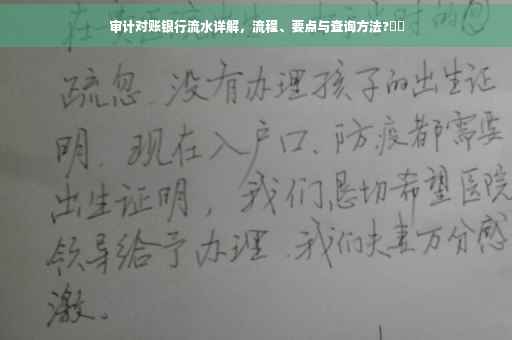 审计对账银行流水详解，流程、要点与查询方法?
疏忽、没有办理孩子的出生证
明、现在入户口、防疫都需要
出生证明，我们恳切希望医院
领导给予办理、我们夫妻万分感
激。